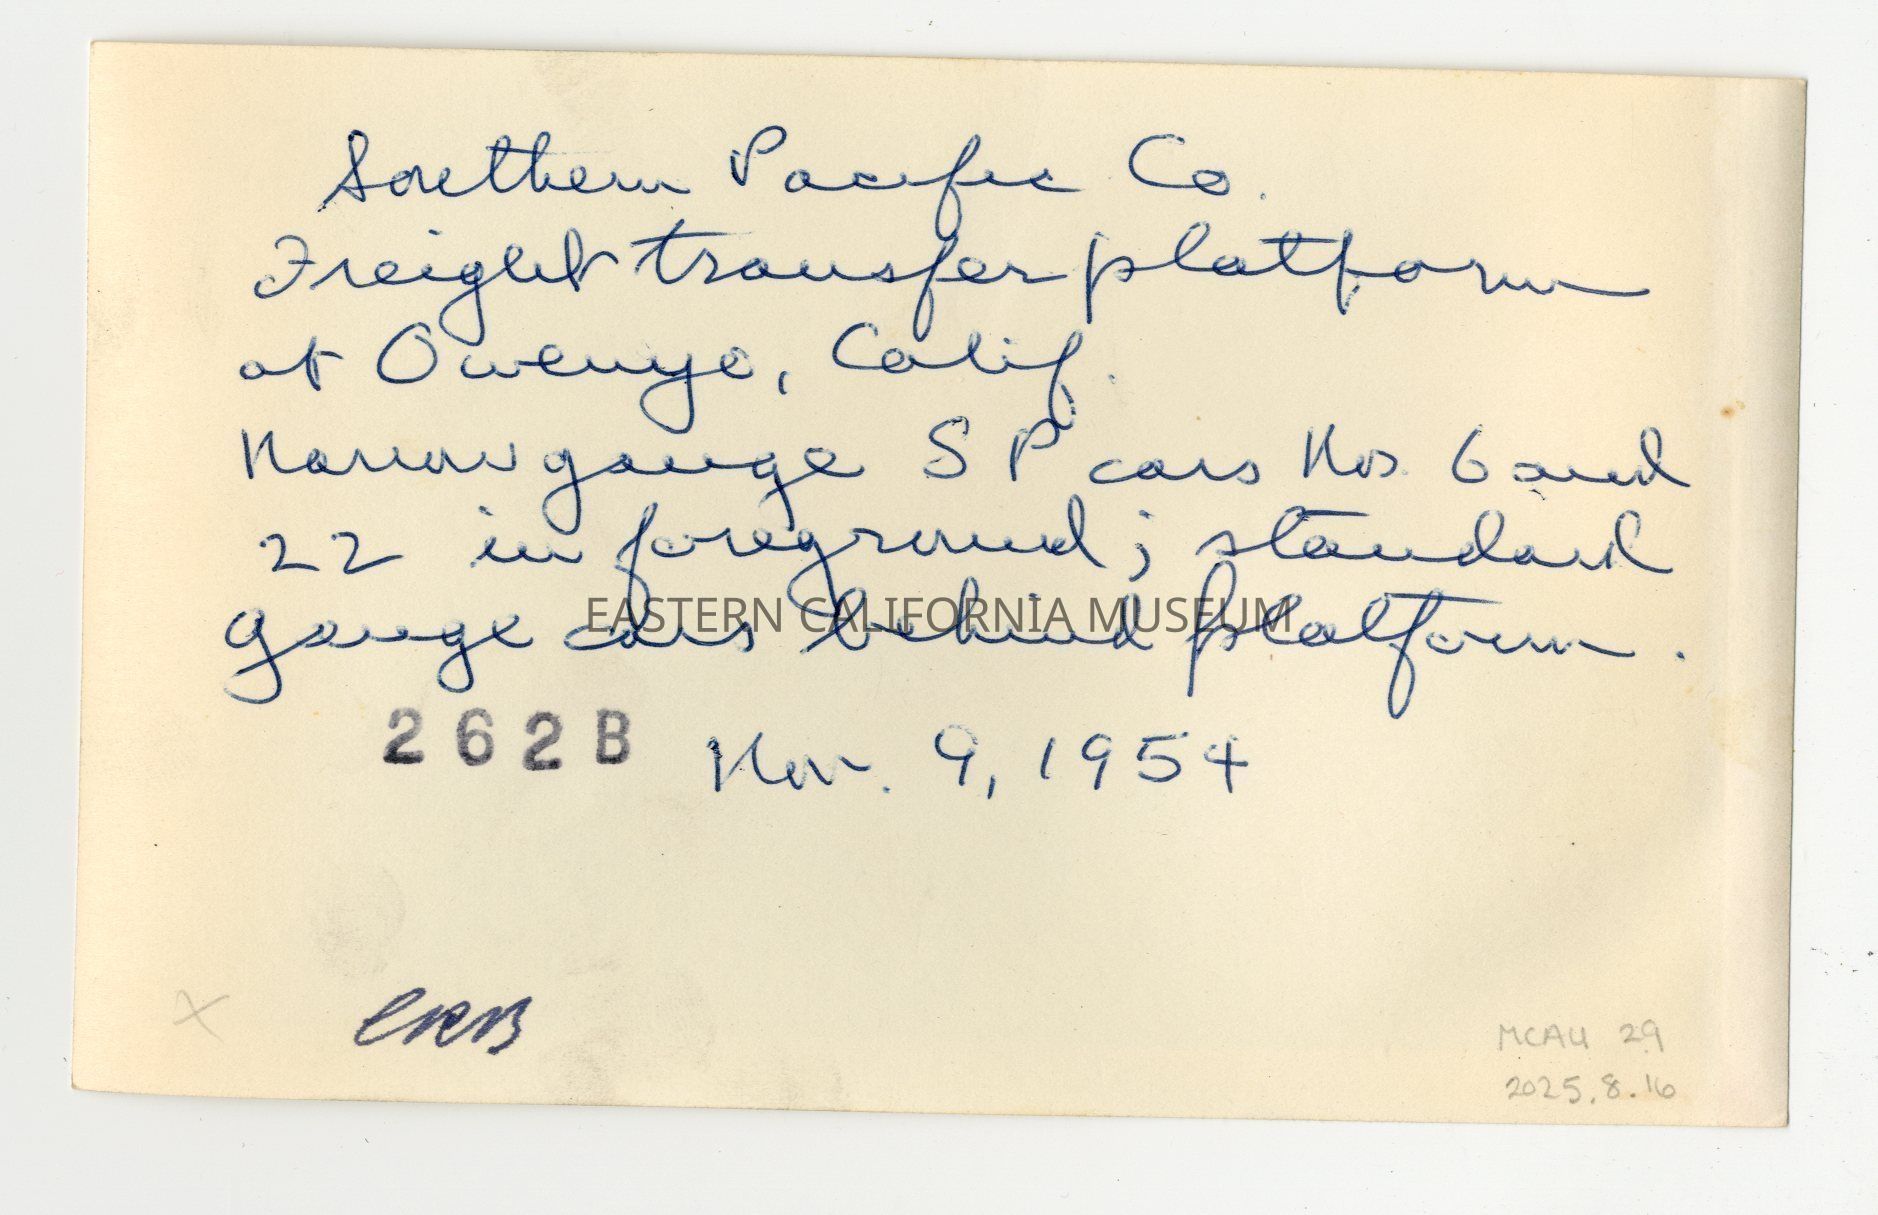 Southern Pacific Co.
Freight transfer platform
at Owenyo, Calif.
Narrow gauge SP cars Nos. 6 and
22 in foreground; standard
gauge cars behind platform.
EASTERN CALIFORNIA MUSEUM
262B Nov. 9, 1954
X
MCAU 29
2025.8.16